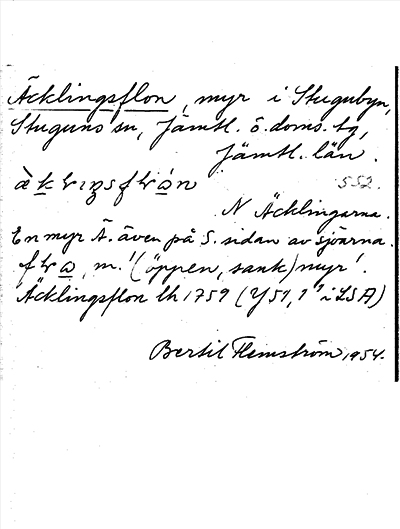 Äcklingsflon, myr i Stugubyn,
Stuguns sn, Jämtl. ö. doms. tg,
Jämtl. län.
552.
N Äcklingarna.
En myr Ä. även på S. sidan av sjöarna.
m. '(öppen, sank) myr'.
Äcklingsflon lh 1759 (Y51, 1' i LSA)
Bertil Flemström 1954.